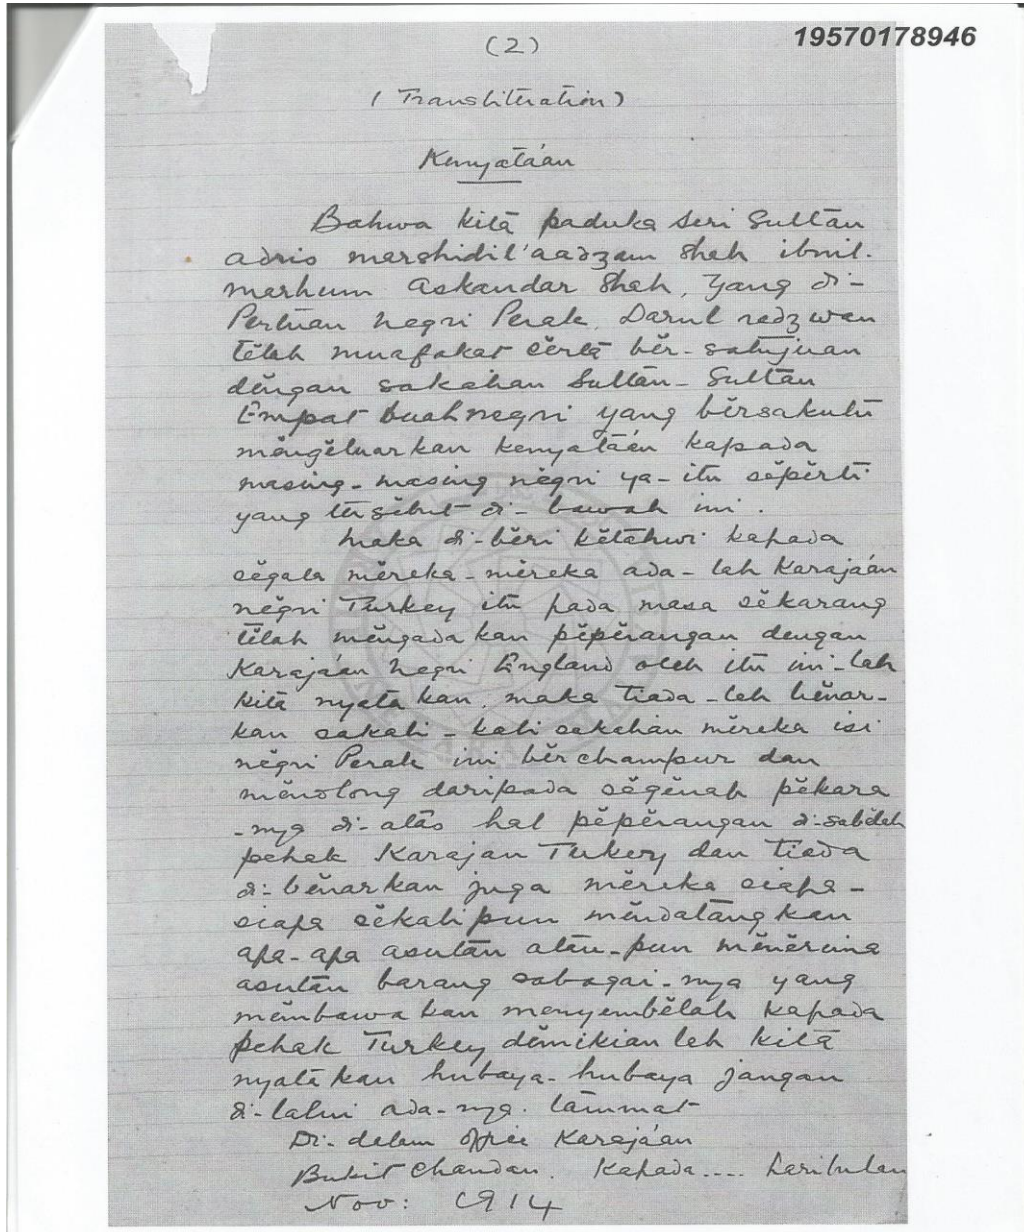 (2)
19570178946
(Transliteration)
Kenyatá'an
Bahwa kitā paduka Seri Sultān
adris marshidil'aadzam Shah ibnil-
marhum askandar Shah, Yang di-
Pertuan Negri Perak, Darul radzwan
tĕlah muafakat sĕrtā bĕr-satujuan
dĕngan sakahan Sultān-Sultān
Ĕmpat buah negri yang bĕrsakutū
mĕngĕluarkan kenyatāán kapada
masing-masing nĕgri ya-itu sĕpĕrti
yang tĕrsĕbut di-bawah ini.
Maka di-bĕri kĕtāhwi kapada
sĕgala mĕreka-mĕreka ada-lah Karajáan
nĕgri Turkey itu pada masa sĕkarang
tĕlah mĕngada kan pĕpĕrangan dengan
Karajáan Negri England oleh itu ini-lah
kitā nyatā kan, maka tiada-lah bĕnar-
kan sakali-kali sakahan mĕreka isi
nĕgri Perak ini bĕrchampur dan
mĕnolong daripada sĕgĕnab pĕkara
-nya di-atās hal pĕpĕrangan di-sabĕlah
pehak Karajan Tukery dan tiada
di-bĕnarkan juga mĕreka siapa-
siapa sĕkalipun mĕndatāng kan
apa-apa asutān atāu-pun mĕnĕrima
asutān barang sabagai-nya yang
mĕmbawa kan menyembĕlah kapada
pehak Turkey dĕmikian lah kitā
nyatā kan hubaya-hubaya jangan
di-lalui ada-nya. tāmmat
Di-dalam office Karajáan
Bukit Chandan. Kapada.... haribulan
Nov: 1914